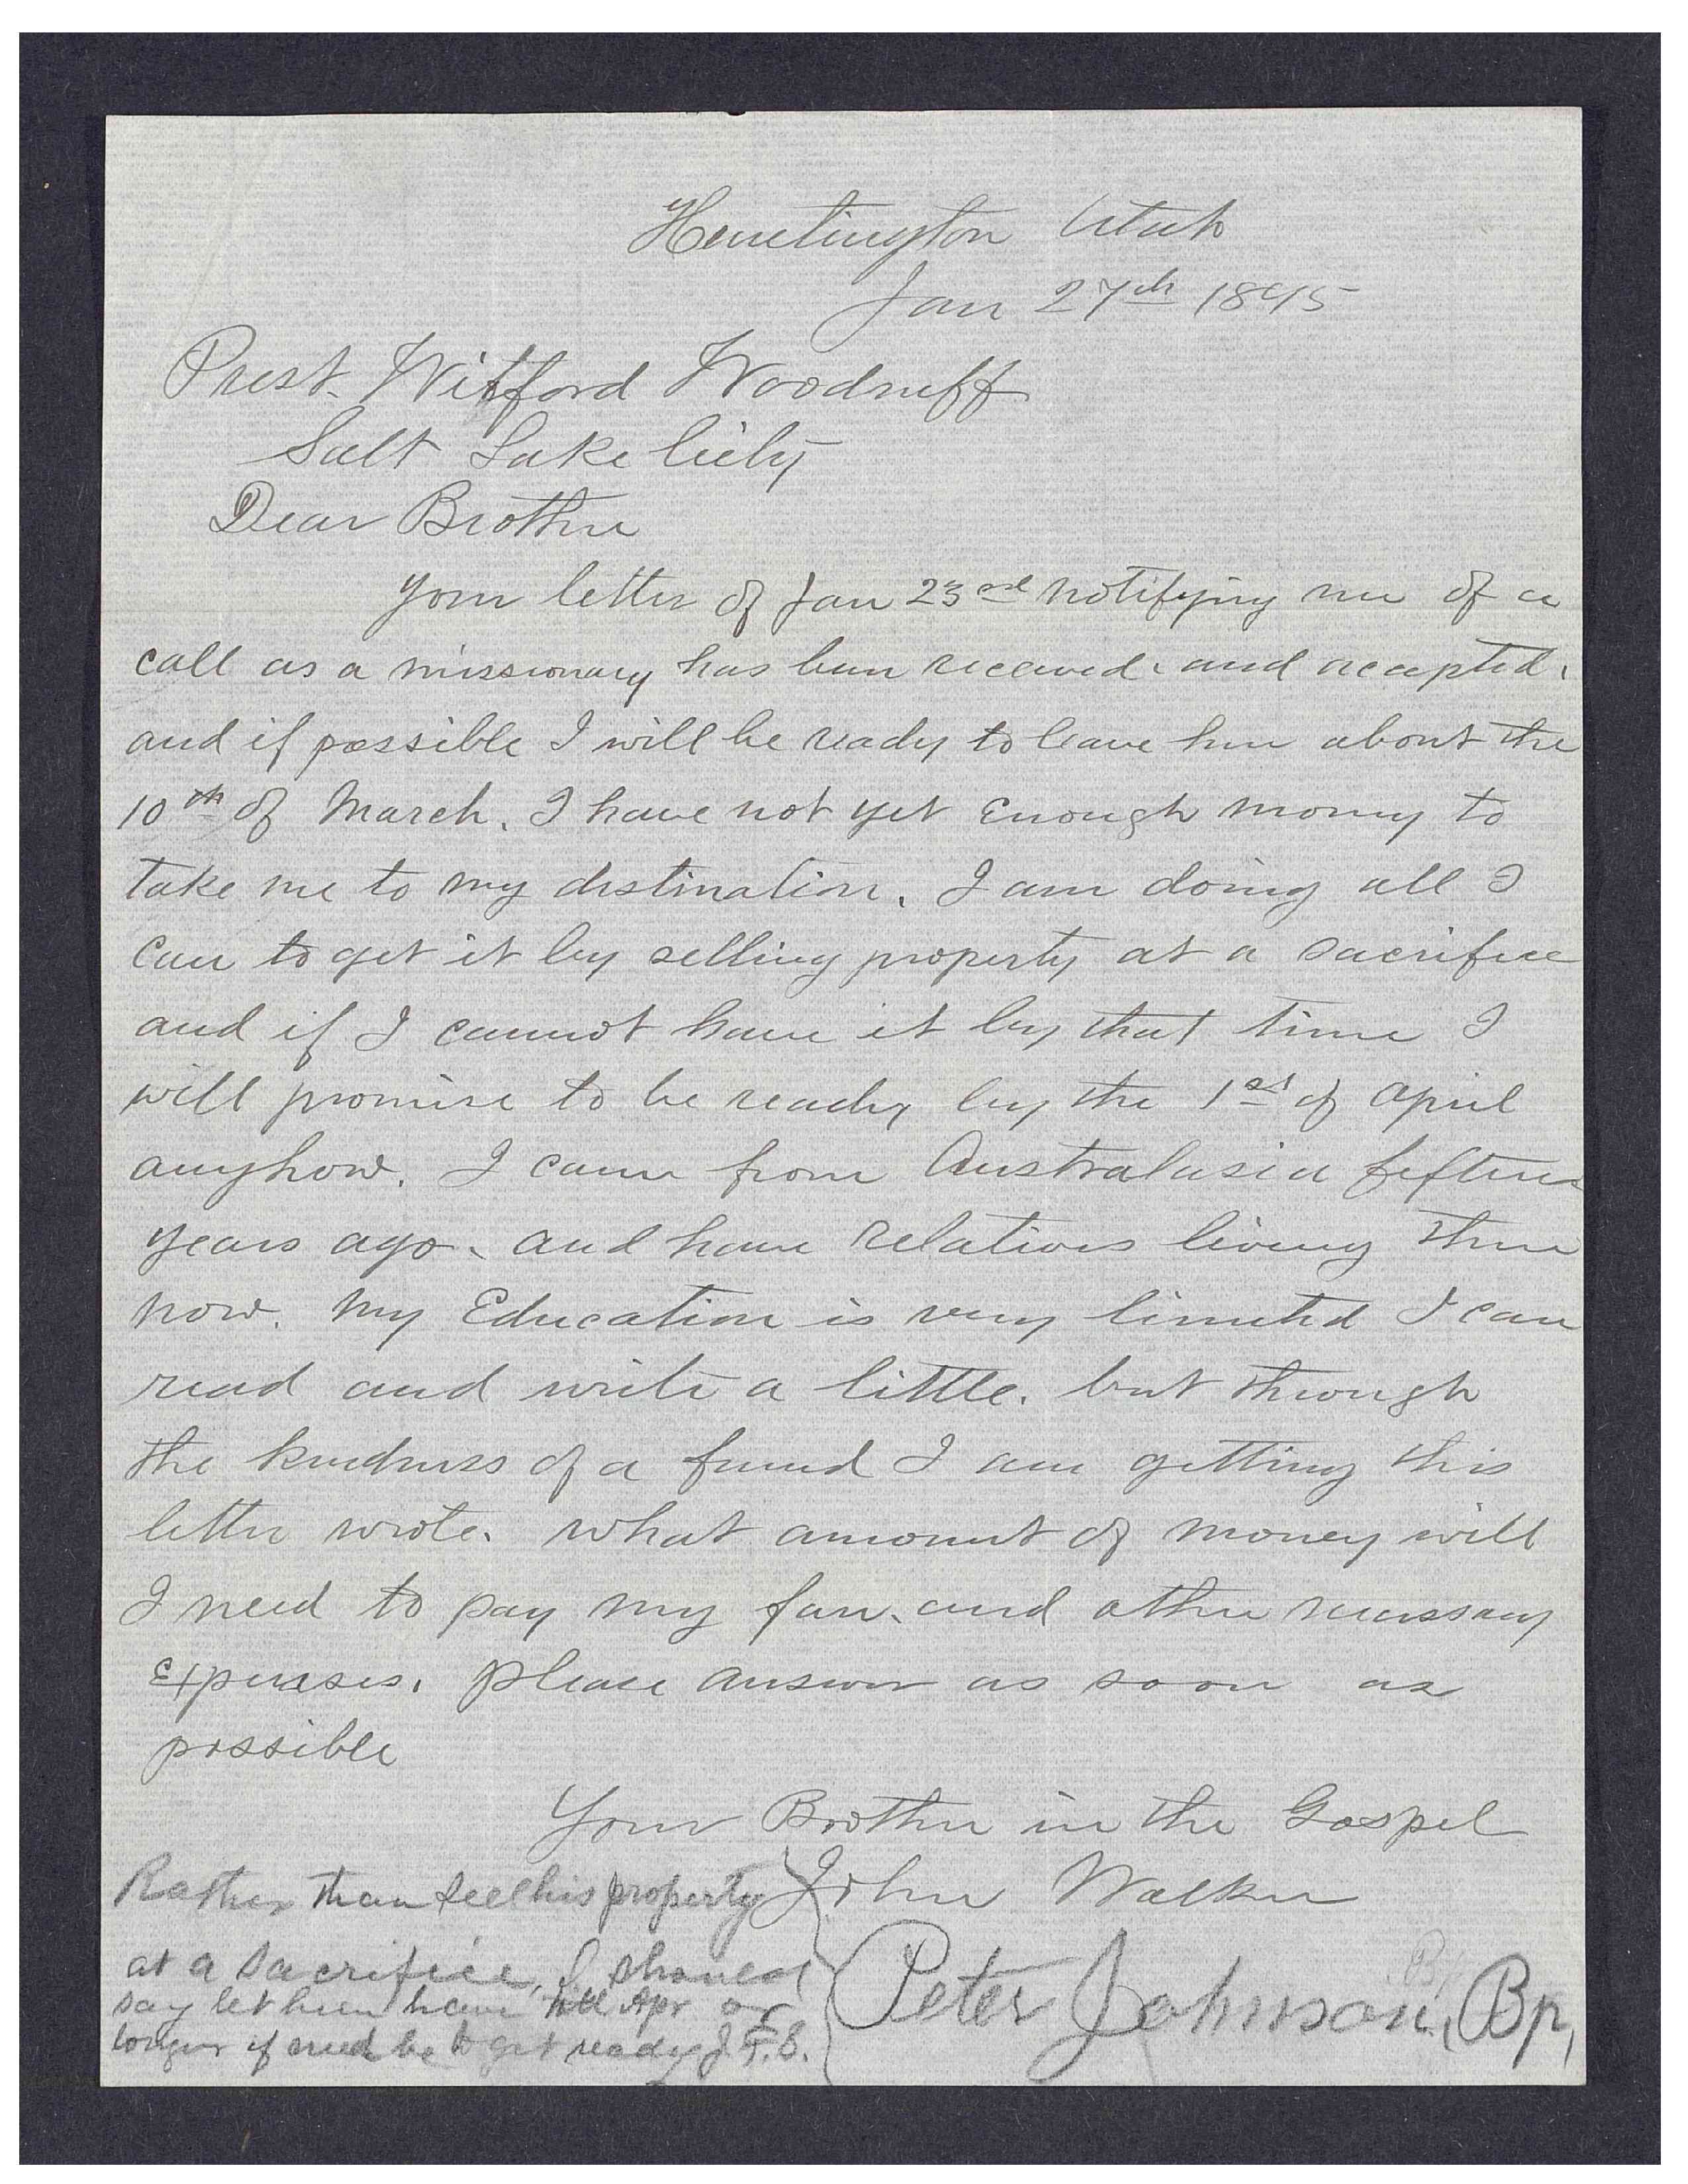 Huntington Utah
Jan 27th 1895
Prest. Wilford Woodruff
Salt Lake City
Dear Brother
Your letter of Jan 23rd notifying me of a
call as a missionary has been received. and accepted.
and if possible I will be ready to leave here about the
10th of March. I have not yet enough money to
take me to my destination. I am doing all I
can to get it by selling property at a sacrifice
and if I cannot have it by that time I
will promise to be ready by the 1st of April
anyhow. I came from Australasia fifteen
years ago. and have relatives living there
now. My Education is very limited I can
read and write a little. but through
the kindness of a friend I am getting this
letter wrote. what amount of money will
I need to pay my fare. and other necessary
Expenses. please answer as soon as
possible
Your Brother in the Gospel
John Walker
Peter Johnson, Bp,
Rather than sell his property
at a sacrifice, I should
say let him have till Apr or
longer if need be to get ready J. F. S.